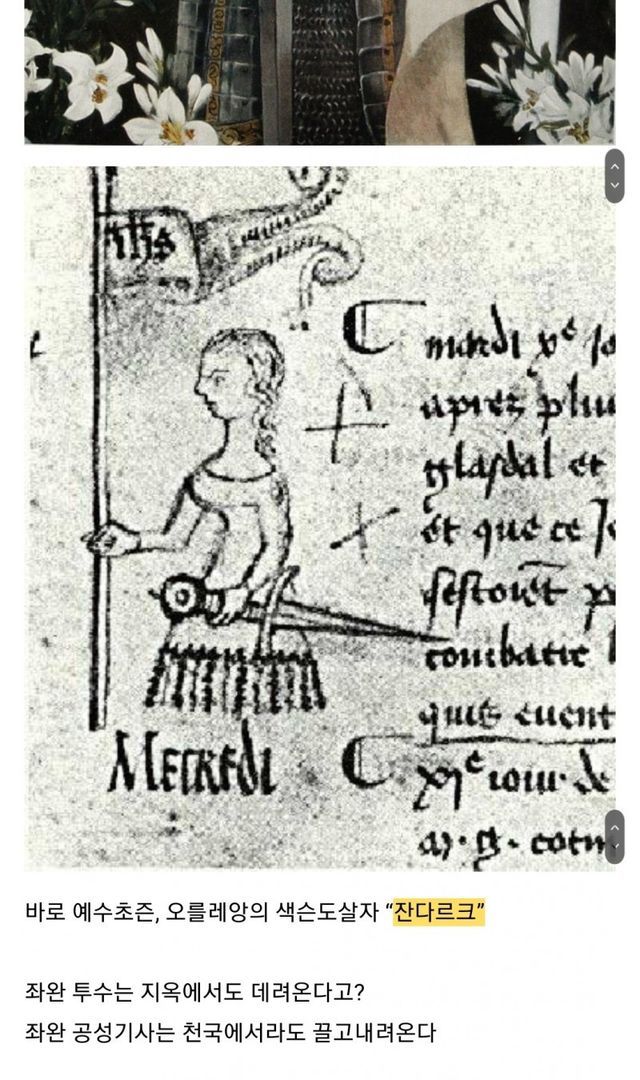 ihs
mardi xe jo
aprez pliu
glasdal et
et que ce
combatre
quis euent
MECREDI
XIe iour de
바로 예수초즌, 오를레앙의 색슨도살자 “잔다르크”
좌완 투수는 지옥에서도 데려온다고?
좌완 공성기사는 천국에서라도 끌고내려온다